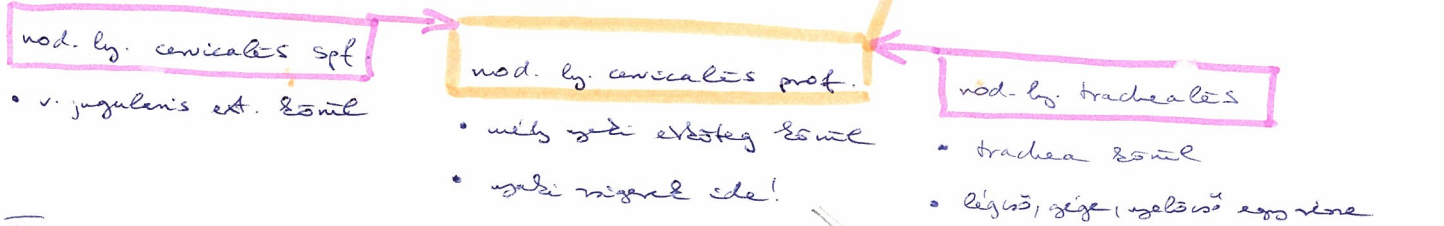 nod. ly. cervicales spf.
• v. jugularis ext. körül
nod. ly. cervicales prof.
• mély nyaki érköteg körül
• nyaki zsigerek ide!
nod. ly. tracheales
• trachea körül
• légcső, gége, nyelőcső egy része